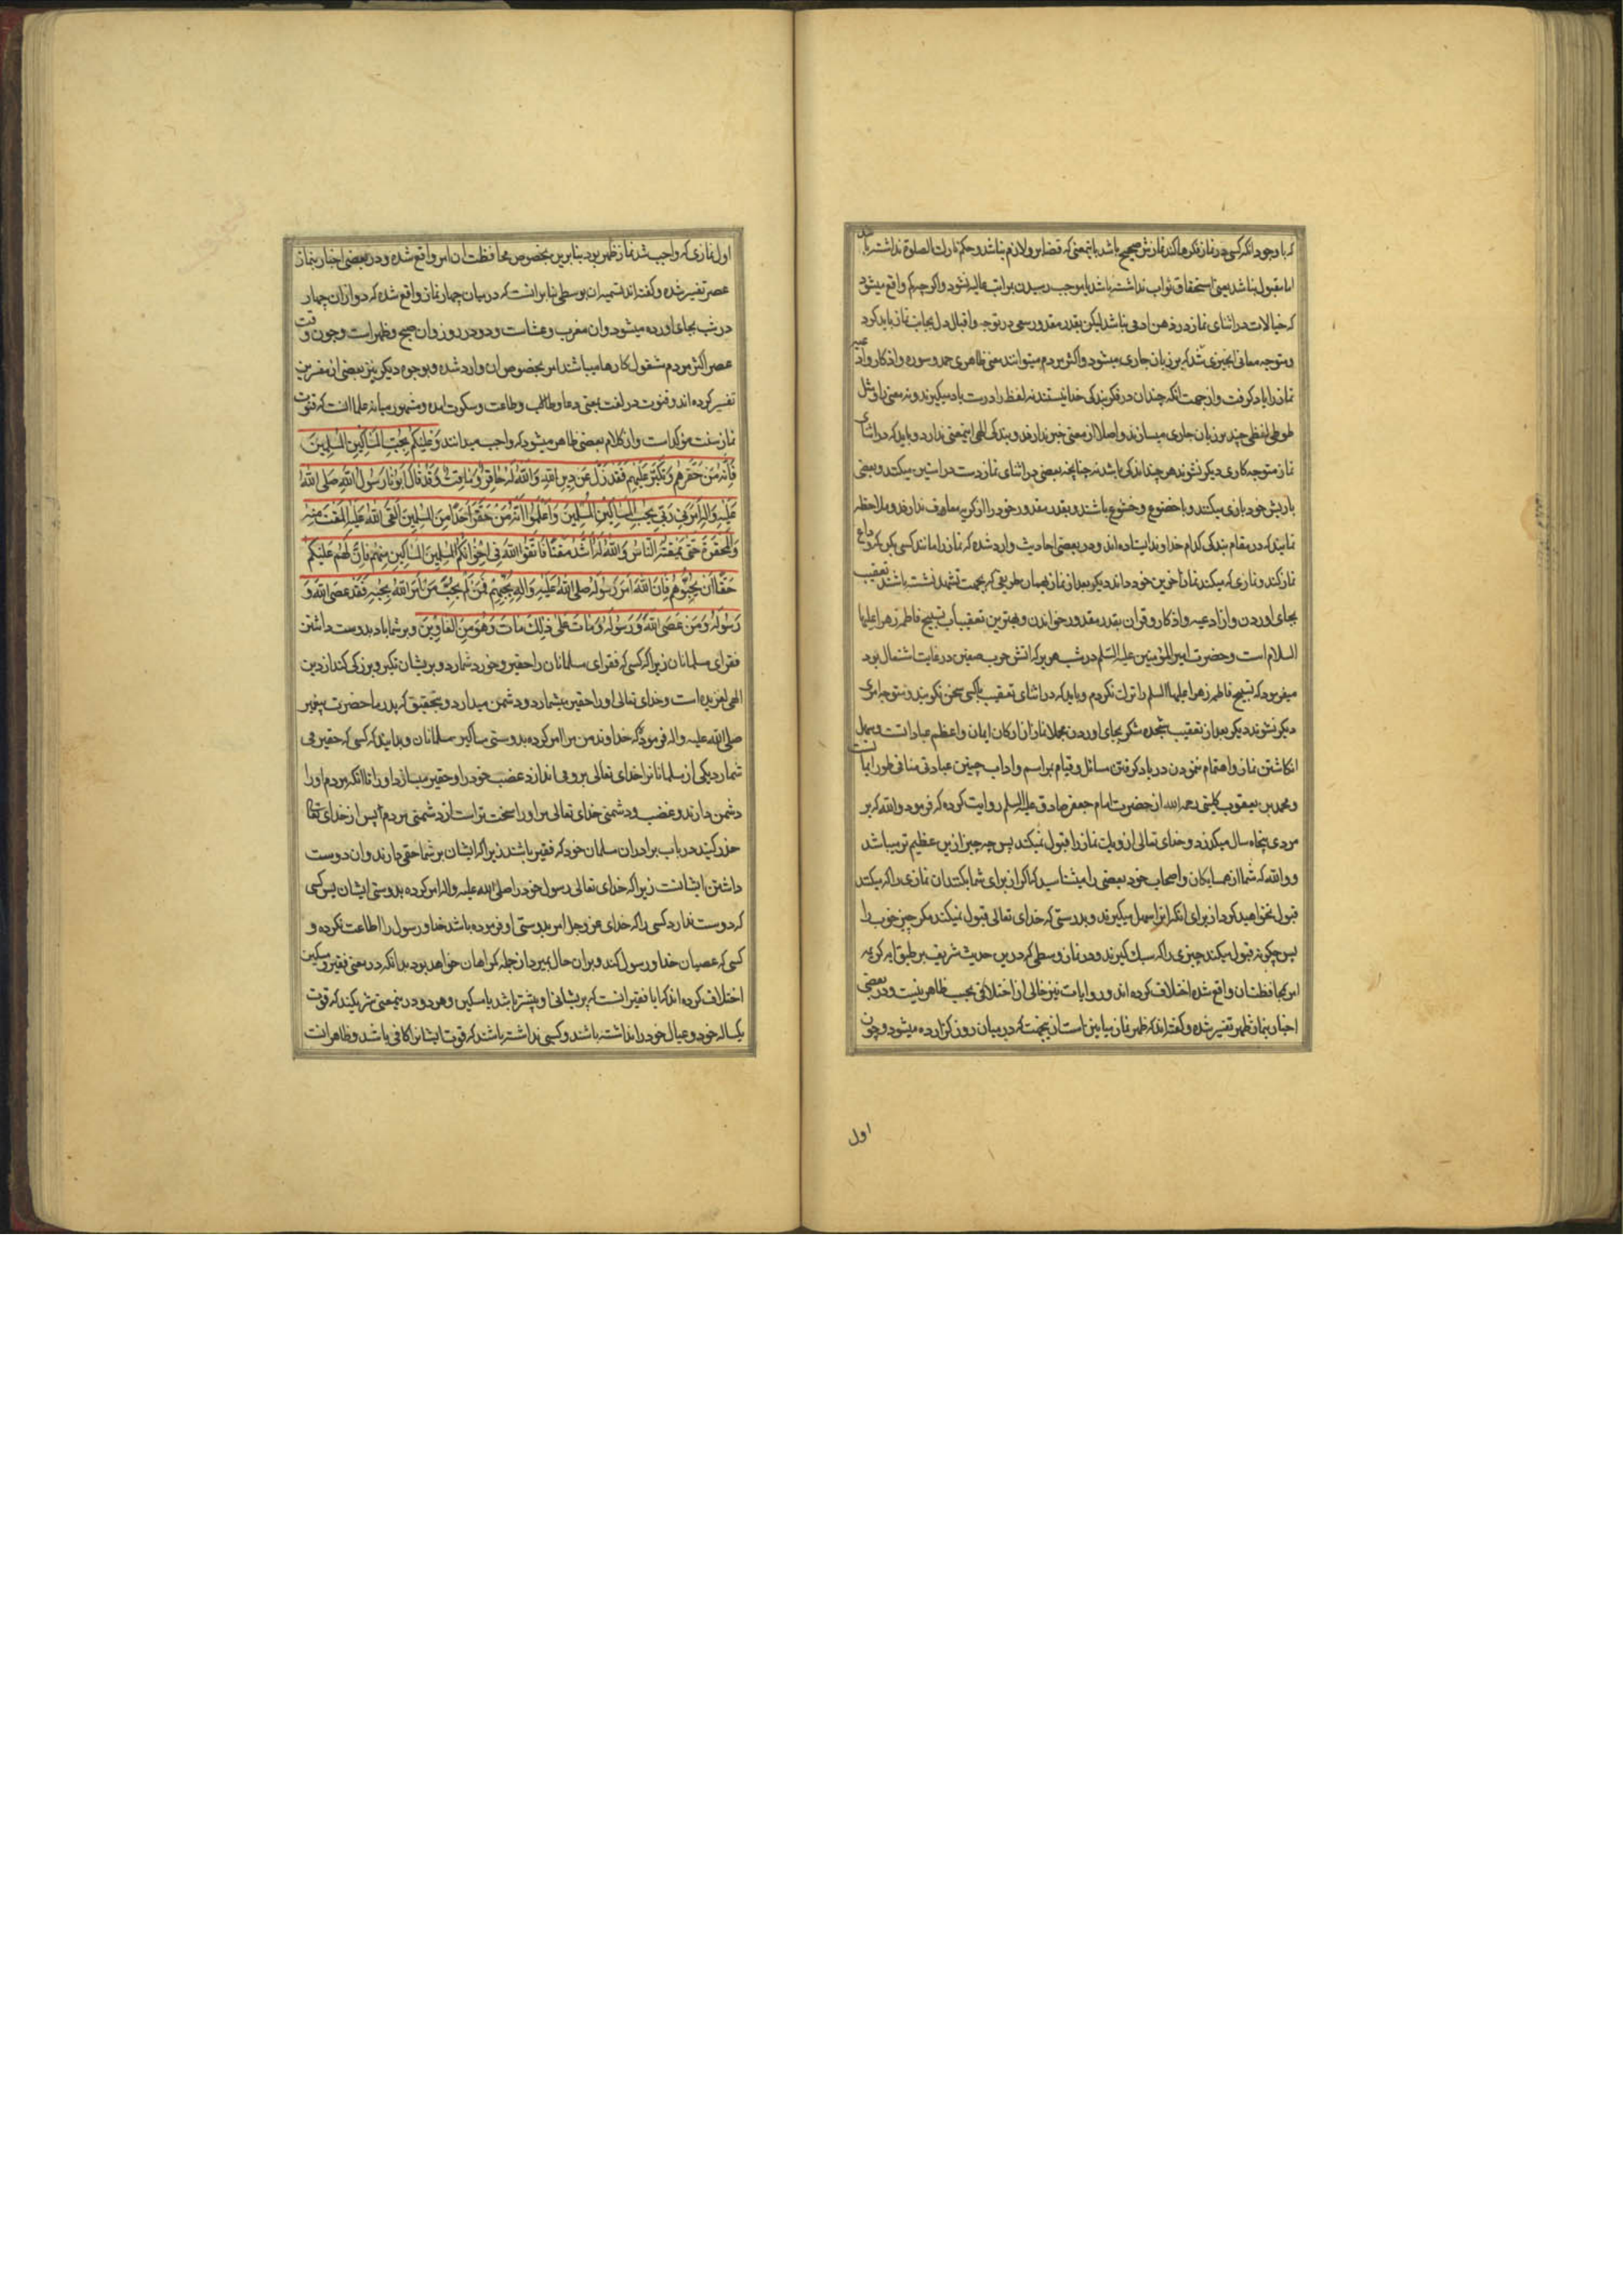 که با وجود آنکه کسی در نماز فکرها کند نمازش صحیح باشد باینمعنی که قضا بر او لازم نباشد و حکم تارک الصلوة نداشته باشد
اما مقبول نباشد یعنی استحقاق ثواب نداشته باشد یا موجب رسیدن بمراتب عالیه نشود و اگر چه کم واقع میشود
که خیالات در اثنای نماز در ذهن ادمی نباشد لیکن بقدر مقدور سعی در توجه و اقبال دل بجانب نماز باید کرد
و متوجه معانی انچیزی شد که بر زبان جاری میشود و اکثر مردم میتوانند معنی ظاهری حمد و سوره و اذکار و ادعیه
نماز را یاد گرفت و از جهت انکه چندان در فکر بندگی خدا نیستند نه لفظ را درست یاد میگیرند و نه معنی را و مثل
طوطی لفظی چند بر زبان جاری میسازند و اصلا از معنی خبر ندارند و بندگی الهی اینمعنی ندارد و باید که در اثنای
نماز متوجه کاری دیگر نشوند هر چند اندکی باشد نه چنانچه بعضی در اثنای نماز دست در استین میکنند و بعضی
با ریش خود بازی میکنند و با خضوع و خشوع باشند و بقدر مقدور خود را از گریه معاف ندارند و ملاحظه
نمایند که در مقام بندگی کدام خداوند ایستاده اند و در بعضی احادیث وارد شده که نماز را مانند کسی بکن که وداع
نماز کند و نمازی که میکند نماز آخرین خود داند دیگر بعد از نماز بهمان طریقی که بجهت تشهد نشسته باشند تعقیب
بجای اوردن و از ادعیه و اذکار و قران بقدر مقدور خواندن و بهترین تعقیبات تسبیح فاطمه زهرا علیها
السلام است و حضرت امیر المؤمنین علیه السلم در شب هریر که اتش حرب صفین در غایت اشتعال بود
میفرمود که تسبیح فاطمه زهرا علیها السلم را ترک نکردم و باید که در اثنای تعقیب باکسی سخن نگویند و متوجه امری
دیگر نشوند دیگر بعد از تعقیب سجده شکر بجای اوردن مجملا نماز از ارکان ایمان و اعظم عبادات است و سهل
انگاشتن نماز و اهتمام ننمودن در یاد گرفتن مسائل و قیام بمراسم و اداب چنین عبادتی منافی طور ایمان است
و محمد بن یعقوب کلینی رحمه الله از حضرت امام جعفر صادق علیه السلم روایت کرده که فرمود والله که بر
مردی پنجاه سال میگذرد و خدای تعالی از و یک نماز را قبول نمیکند پس چه چیز ازین عظیم تر میباشد
و والله که شما از همسایگان و اصحاب خود بعضی را میشناسید که اگر از برای شما بکنند ان نمازی را که میکنند
قبول نخواهید کرد از برای انکه انرا سهل میگیرند و بدرستی که خدای تعالی قبول نمیکند مگر چیز خوب را
پس چگونه قبول میکند چیزی را که سبک گیرند و در نماز وسطی که درین حدیث شریف بر طبق ایه کریمه
امر بمحافظت ان واقع شده اختلاف کرده اند و روایات نیز خالی از اختلافی بحسب ظاهر نیست و در بعضی
اخبار بنماز ظهر تفسیر شده و گفته اند که ظهر نماز میانین است از ینجهت که در میان روز گزارده میشود و چون
اول
اول نمازی که واجب شد نماز ظهر بود بنابرین بخصوص محافظت ان امر واقع شده و در بعضی اخبار بنماز
عصر تفسیر شده و گفته اند تسمیه ان بوسطی بنابرانست که در میان چهار نماز واقع شده که دو از ان چهار
در شب بجای اورده میشود و ان مغرب و عشاست و دو در روز و ان صبح و ظهر است و چون وقت
عصر اکثر مردم مشغول کارها میباشند امر بخصوص ان وارد شده و بوجوه دیگر نیز بعضی از مفسرین
تفسیر کرده اند و قنوت در لغت بمعنی دعا و طلب و طاعت و سکوت امده و مشهور میانه علما انست که قنوت
نماز سنت مؤکد است و از کلام بعضی ظاهر میشود که واجب میدانند وَعَلَيْكُمْ بِحُبِّ الْمَسَاكِينِ الْمُسْلِمِينَ
فَإِنَّهُ مَنْ حَقَّرَهُمْ وَتَكَبَّرَ عَلَيْهِمْ فَقَدْ زَلَّ عَنْ دِينِ اللهِ وَاللهُ لَهُ حَاقِرٌ وَمَاقِتٌ وَقَدْ قَالَ أَبُونَا رَسُولُ اللهِ صَلَّى اللهُ
عَلَيْهِ وَآلِهِ أَمَرَنِي رَبِّي بِحُبِّ الْمَسَاكِينِ الْمُسْلِمِينَ وَاعْلَمُوا أَنَّهُ مَنْ حَقَّرَ أَحَدًا مِنَ الْمُسْلِمِينَ أَلْقَى اللهُ عَلَيْهِ الْمَقْتَ مِنْهُ
وَالْمَحْقَرَةَ حَتَّى يَمْقُتَهُ النَّاسُ وَاللهُ لَهُ أَشَدُّ مَقْتًا فَاتَّقُوا اللهَ فِي إِخْوَانِكُمُ الْمُسْلِمِينَ الْمَسَاكِينِ مِنْهُمْ فَإِنَّ لَهُمْ عَلَيْكُمْ
حَقًّا أَنْ تُحِبُّوهُمْ فَإِنَّ اللهَ أَمَرَ رَسُولَهُ صَلَّى اللهُ عَلَيْهِ وَآلِهِ بِحُبِّهِمْ فَمَنْ لَمْ يُحِبَّ مَنْ أَمَرَ اللهُ بِحُبِّهِ فَقَدْ عَصَى اللهَ وَ
رَسُولَهُ وَمَنْ عَصَى اللهَ وَرَسُولَهُ وَمَاتَ عَلَى ذَلِكَ مَاتَ وَهُوَ مِنَ الْغَاوِينَ و بر شما باد بدوست داشتن
فقرای مسلمانان زیرا که کسی که فقرای مسلمانان را حقیر و خورد شمارد و بریشان تکبر و بزرگی کند از دین
الهی لغزیده است و خدای تعالی او را حقیر میشمارد و دشمن میدارد و بتحقیق که پدر ما حضرت پیغمبر
صلی الله علیه و اله فرمود که خداوند من مرا امر کرده بدوستی مساکین مسلمانان و بدانید که کسی که حقیر می
شمارد یکی از مسلمانانرا خدای تعالی برو می اندازد غضب خود را و حقیر میسازد او را تا انکه مردم او را
دشمن دارند و غضب و دشمنی خدای تعالی مر او را سخت تر است از دشمنی مردم پس از خدای تعالی
حذر کنید در باب برادران مسلمان خود که فقیر باشند زیرا که ایشان بر شما حقی دارند و ان دوست
داشتن ایشانست زیرا که خدای تعالی رسول خود را صلی الله علیه و اله امر کرده بدوستی ایشان پس کسی
که دوست ندارد کسی را که خدای عز و جل امر بدوستی او فرموده باشد خدا و رسول را اطاعت نکرده و
کسی که عصیان خدا و رسول کند و بران حال بمیرد از جمله گمراهان خواهد بود بدانکه در معنی فقیر و مسکین
اختلاف کرده اند که ایا فقیر انست که پریشانی او بیشتر باشد یا مسکین و هر دو در اینمعنی شریکند که قوت
یکساله خود و عیال خود را نداشته باشند و کسبی نداشته باشند که قوت ایشانرا کافی باشد و ظاهر انست